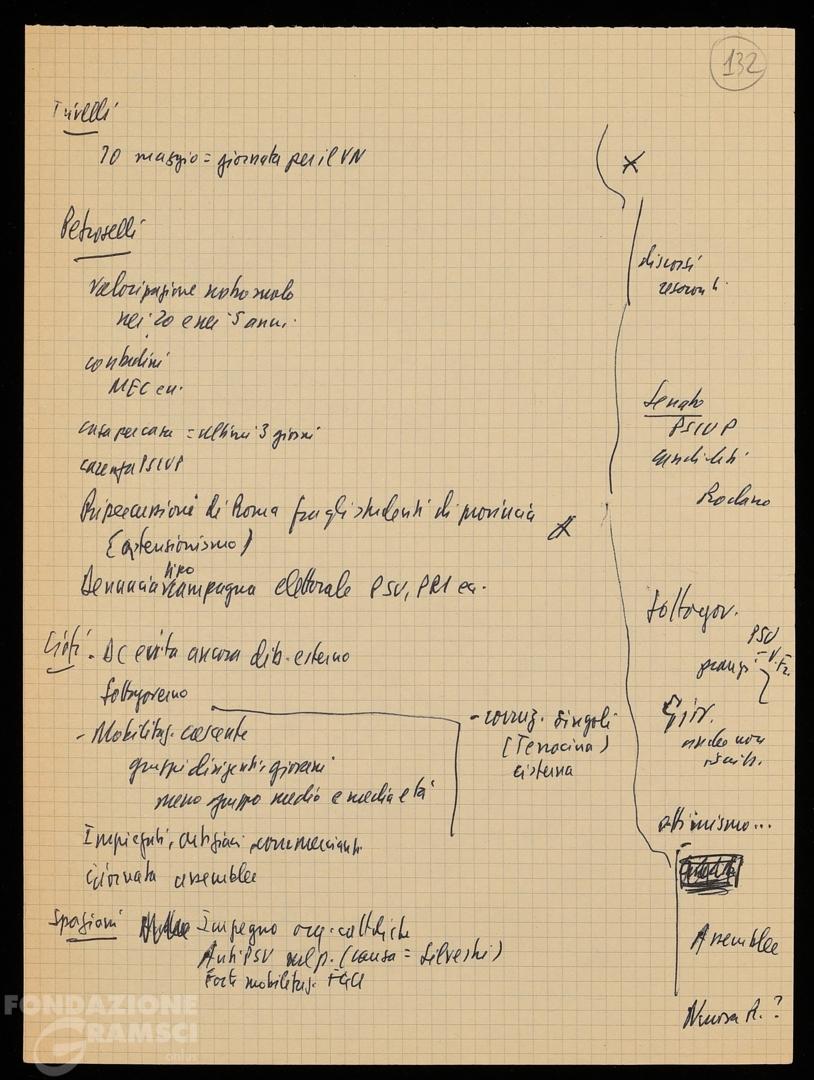 132
Trivelli
10 maggio = giornata per il VN
Petroselli
valorizzazione nostro ruolo
nei 20 e nei 5 anni.
contadini
MEC ecc.
casa per casa = ultimi 3 giorni
carenza PSIUP
Ripercussioni di Roma fra gli studenti di provincia
(astensionismo)
Denuncia tipo campagna elettorale PSU, PRI ecc.
Ciofi - DC evita ancora dib. esterno
Sottogoverno
- Mobilitaz. crescente
gruppi dirigenti, giovani
meno gruppo medio e media età
Impiegati, artigiani, commercianti
Giornata assemblee
- corruz. singoli
(Terracina)
cisterna
Spaziani Impegno org. cattoliche
Anti PSU nel p. (causa = Silvestri)
Forte mobilitaz. FGCI
discorsi
resoconti
Senato
PSIUP
candidati
Rodano
Sottogov.
PSU
- V. Fr.
Giov.
anche non
ottimismo...
Assemblee
Nuova A. ?
FONDAZIONE
GRAMSCI
onlus